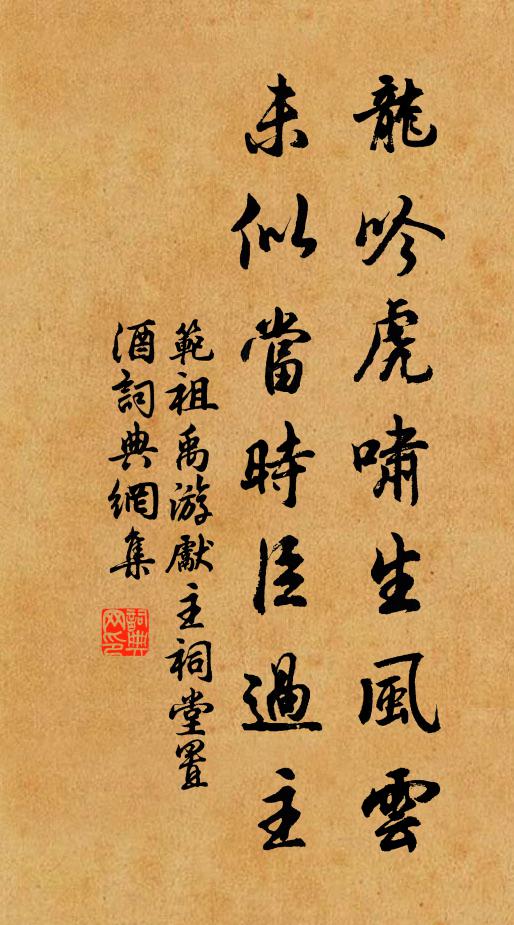 龍吟虎嘯生風雲
未似當時臣遇主
範祖禹游獻主祠堂置
酒詞典網集
詞典
网印